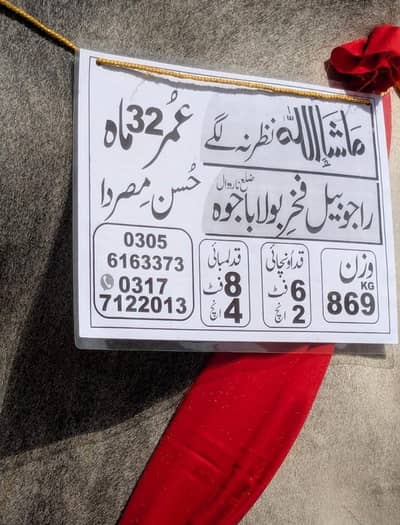 ماشاءاللہ نظر نہ لگے
عمُر 32 ماہ
راجو بیل فخرِ بولا باجوہ ضلع نارووال
حُسن مِصر دا
وزن
869 KG
قد اونچائی
6 فٹ
2 انچ
قد لمبائی
8 فٹ
4 انچ
0305
6163373
0317
7122013